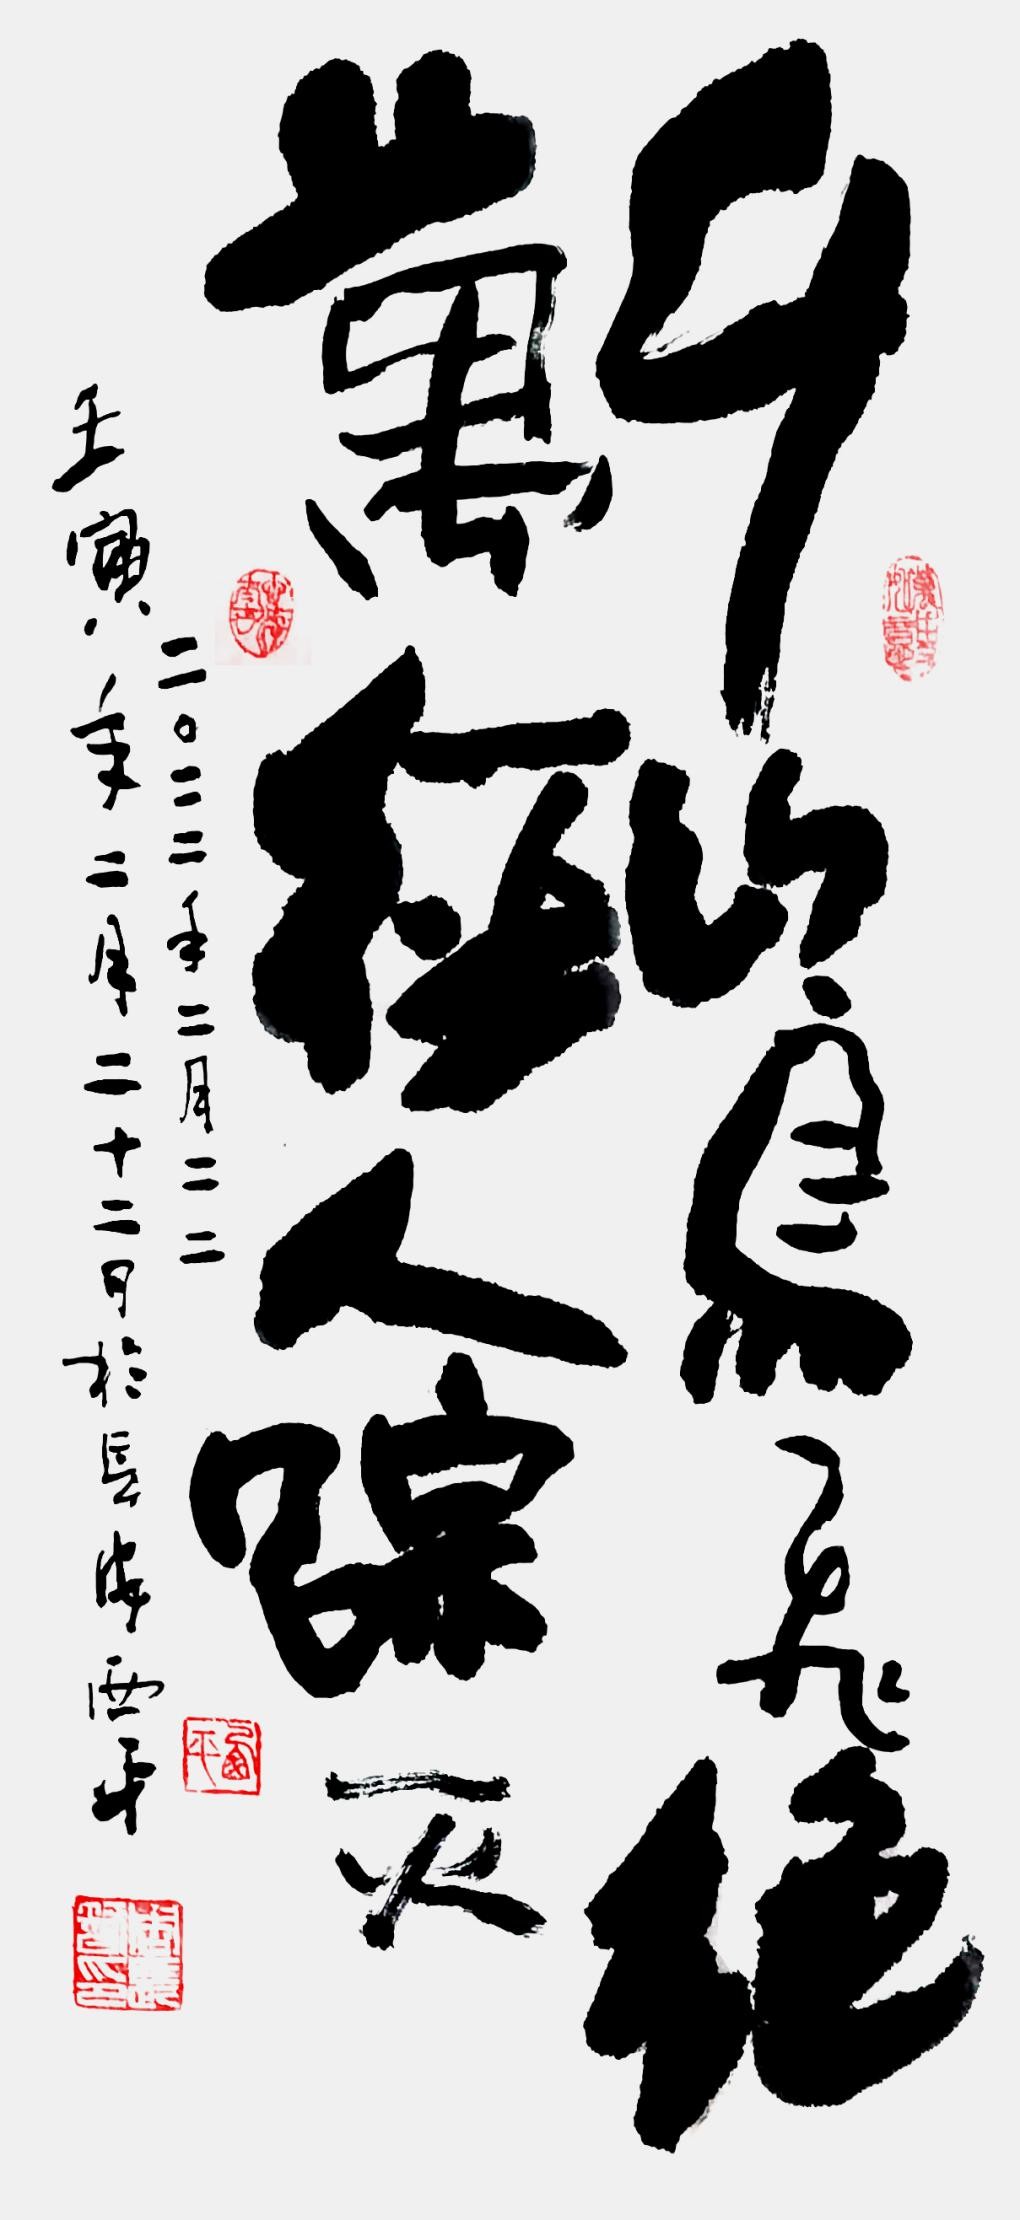 千山鳥飛绝
萬径人踪灭
二〇二二年二月二二
壬寅年二月二十二日於長海西平